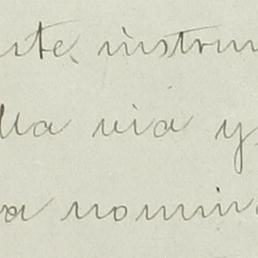 nte, instrum
lla via y
a nomin